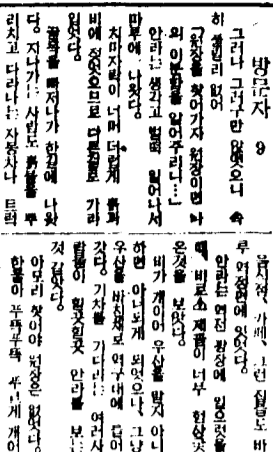 방문자 9
그러나 그러구만 앉엇으니 속
히 풀릴리 없어
「원장을 찾어가자 원장이면 나
의 이 분함을 알어주리니…」
안라는 생각고 벌떡 일어나서
따부에 나왓다.
치마자락이 너머 더럽게 흙과
비에 젖엇으므로 다른길로 가라
입엇다.
골목을 빠저나가 한길에 나왓
다. 지나가는 사람도 흙물을 뿌
리치고 다라나는 자동차나 트럭
음식점, 카페, 그런 집들도 바
루 역정면에 잇엇다.
안라는 역전 광장에 일으럿을
때, 비로소 제풀이 너무 험상굿
은것을 보앗다.
비가 개이어 우산을 받지 아니
하면 아니되게 되엇으나, 그냥
우산을 바친채로 역구내에 들어
갓다. 기차를 기다리는 여러사
람들이 힐끗힐끗 안라를 보는
것 같앗다.
아모리 찾어야 원장은 없엇다.
한쪽이 뚜뚝뚜뚝 푸르게 개어